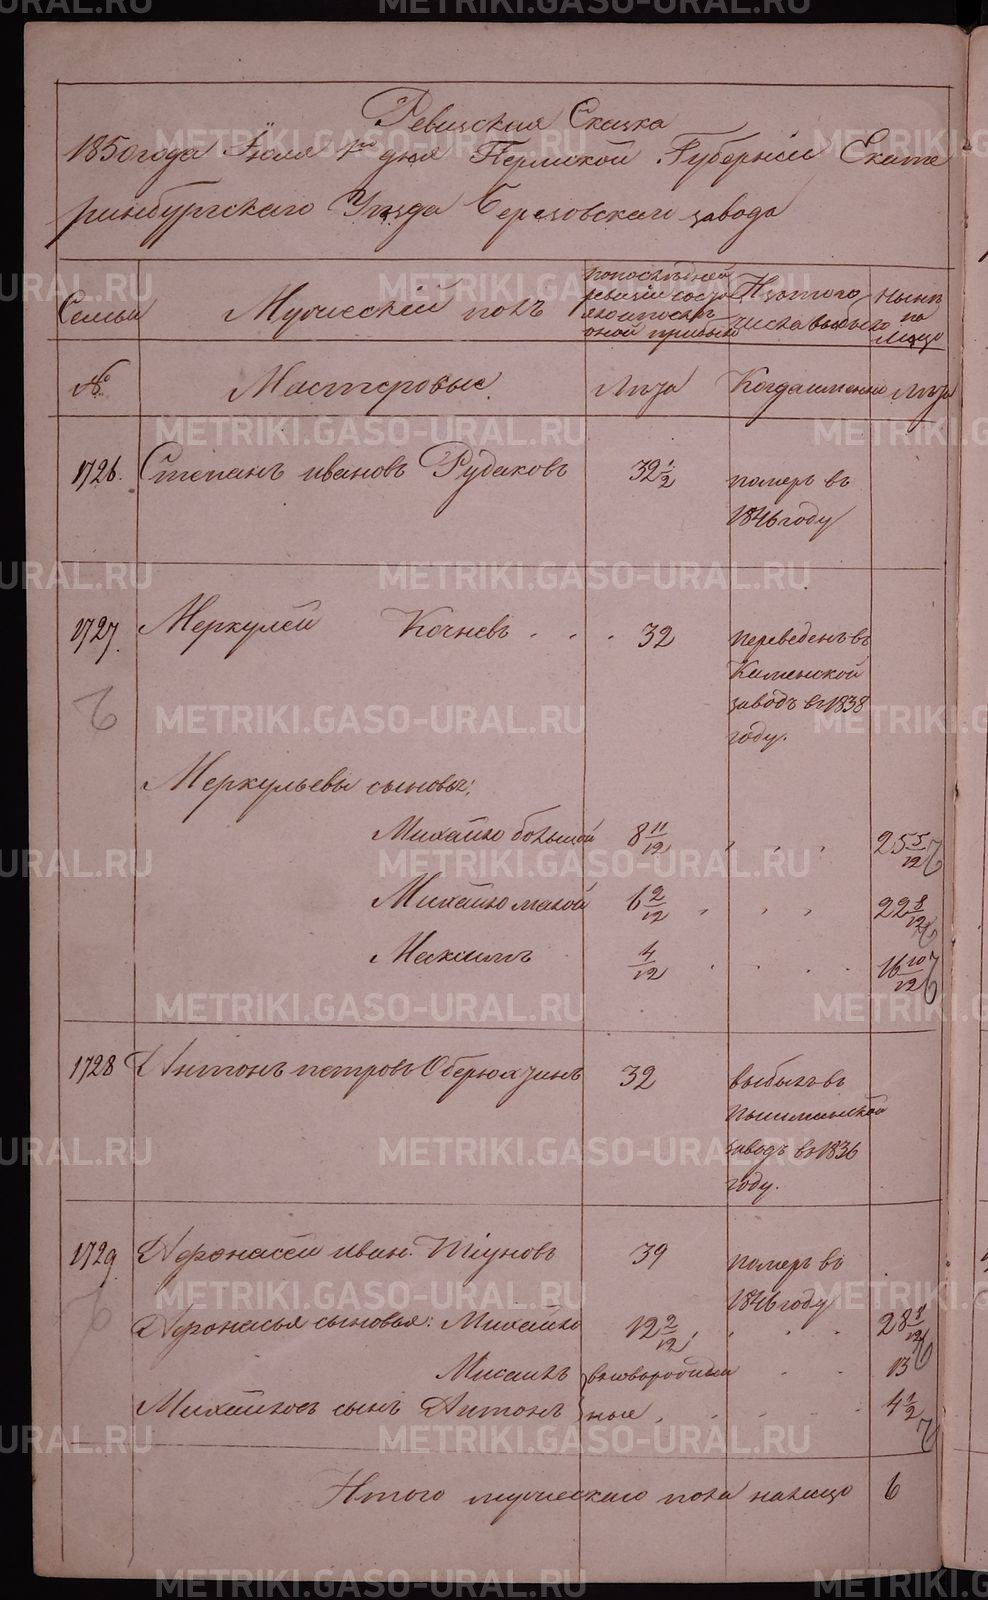 Ревизская Сказка
1850 года Іюля 1го дня Пермской Губерніи Екате
ринбургскаго Уезда Березовскаго завода
Семьи
Мужескій полъ
По последней
ревизіи состо
яло и после
оной прибыло
Изъ того
числа выбыло
Ныне
на
лицо
№
Мастеровые
Лета
Когда именно
Лета
1726.
Степанъ ивановъ Рудаковъ
32 1/2
померъ въ
1846 году
1727.
Меркулей Кочневъ . . .
32
переведенъ въ
Каменской
заводъ въ 1838
году.
Меркульевы сыновья:
Михайло большой
8 11/12
25 5/12
Михайло малой
6 2/12
22 8/12
Максимъ
4/12
16 10/12
1728
Антонъ петровъ Оберюхтинъ
32
выбылъ въ
Пышминской
заводъ въ 1836
году.
1729
Афонасей иван. Тіуновъ
39
померъ въ
1846 году
Афонасья сыновья: Михайло
12 2/12
28 8/12
Михаилъ
вновьрожден
13
Михайловъ сынъ Антонъ
ные
4 1/2
Итого мужескаго пола налицо
6
METRIKI.GASO-URAL.RU